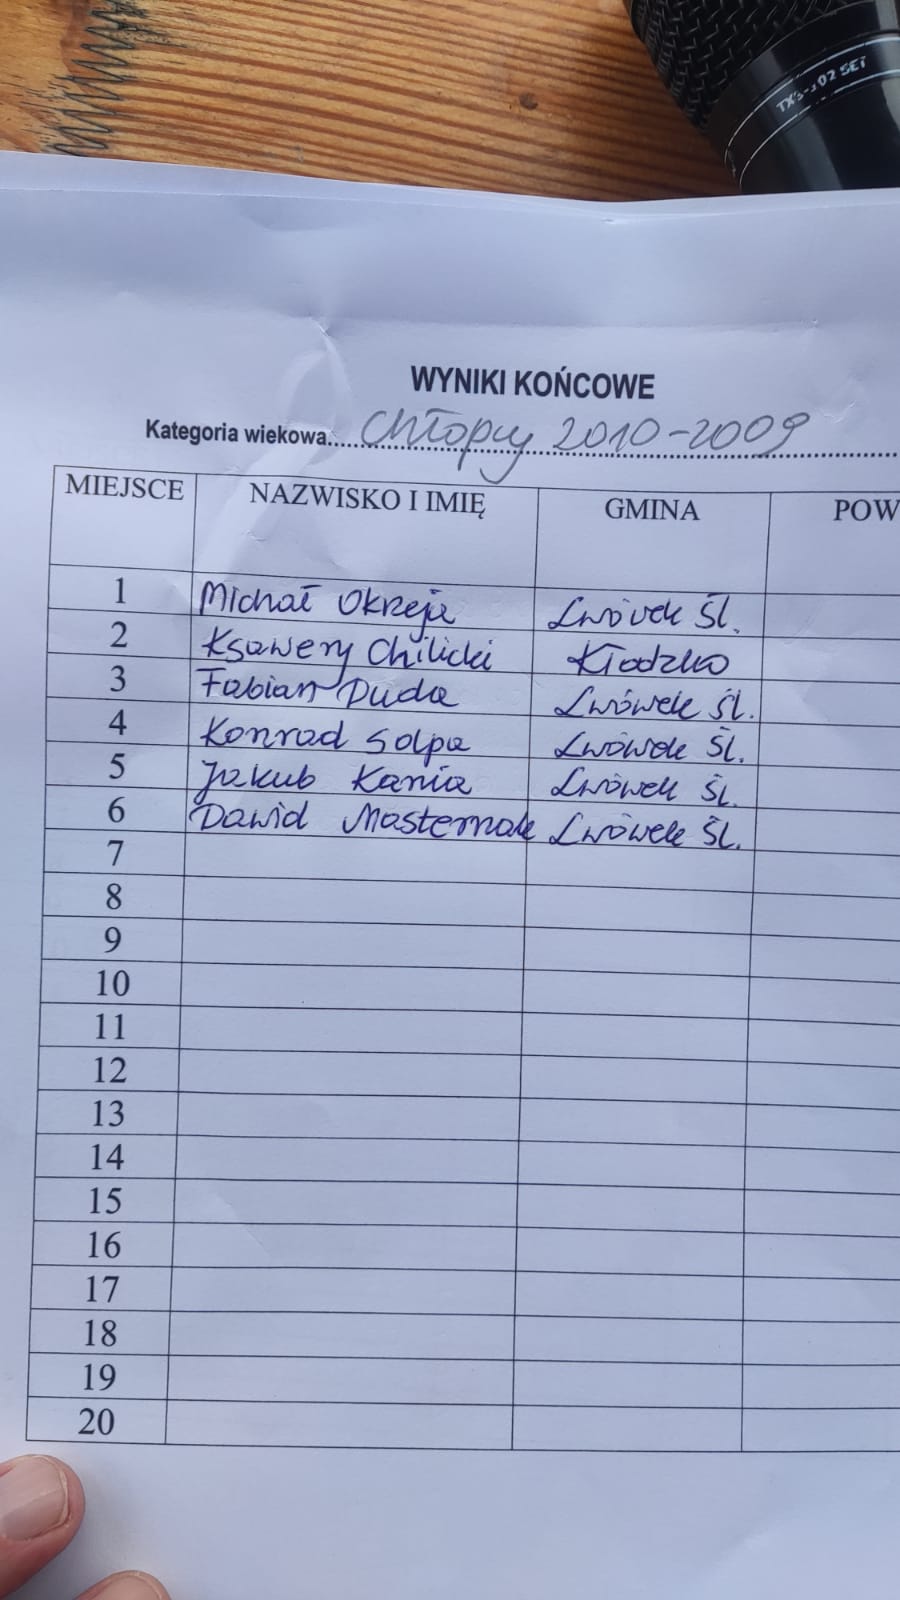 WYNIKI KOŃCOWE
Kategoria wiekowa..... Chłopcy 2010-2009
MIEJSCE NAZWISKO I IMIĘ GMINA POW
1 Michał Okreja Lwówek Śl.
2 Ksawery Chilicki Kłodzko
3 Fabian Duda Lwówek Śl.
4 Konrad Solpa Lwówek Śl.
5 Jakub Kania Lwówek Śl.
6 Dawid Masternak Lwówek Śl.
7
8
9
10
11
12
13
14
15
16
17
18
19
20